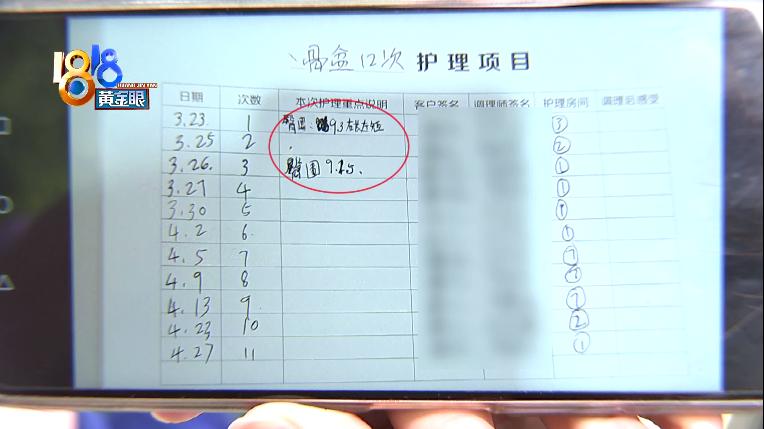 1818
黄金眼
骨盆12次 护理项目
日期 次数 本次护理重点说明 客户签名 调理师签名 护理房间 调理后感受
3.23 1 臀围:93右长左短 ③
3.25 2 ②
3.26. 3 臀围 9.15. ①
3.27 4 ①
3.30 5 ①
4.2 6. ①
4.5 7 ⑦
4.9 8 ⑦
4.13 9 ⑦
4.23 10 ②
4.27 11 ①